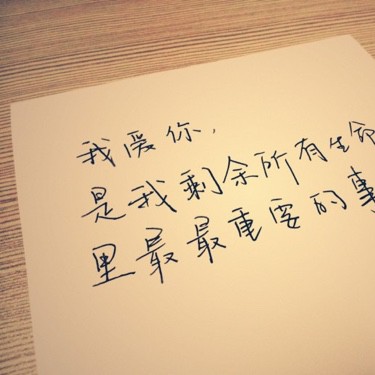 我爱你，
是我剩余所有生命
里最最重要的事